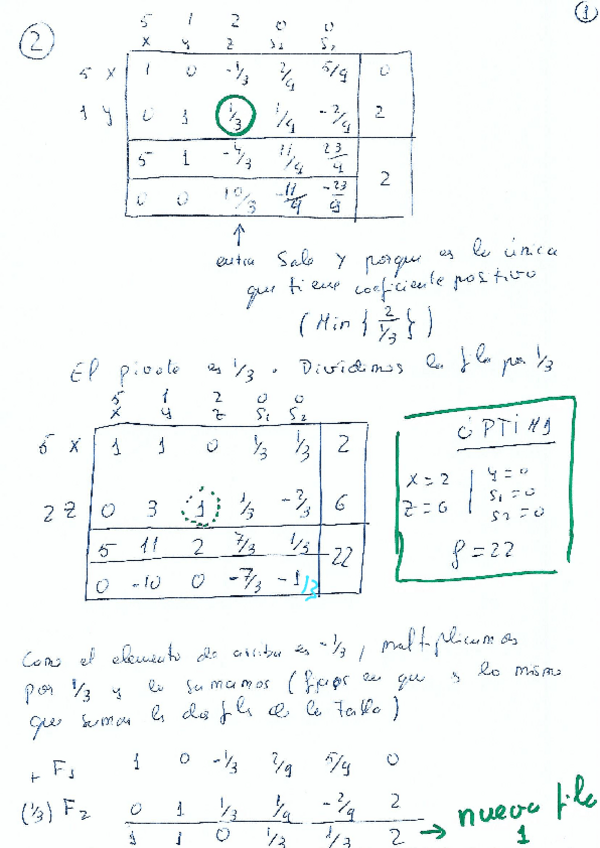 ①
②
5 1 2 0 0
x y z s₁ s₂
5 x 1 0 -1/3 2/9 5/9 0
1 y 0 1 1/3 1/9 -2/9 2
5 1 -4/3 11/9 23/9 2
0 0 10/3 -11/9 -23/9
↑
entra Sale y porque es la única
que tiene coeficiente positivo
(Min { 2 / 1/3 })
El pivote es 1/3. Dividimos la fila por 1/3
5 1 2 0 0
x y z s₁ s₂
5 x 1 1 0 1/3 1/3 2
2 z 0 3 1 1/3 -2/3 6
5 11 2 7/3 1/3 22
0 -10 0 -7/3 -1/3
ÓPTIMO
x=2 | y=0
z=6 | s₁=0
s₂=0
f=22
Como el elemento de arriba es -1/3, multiplicamos
por 1/3 y lo sumamos (fijaos en que es lo mismo
que sumar las dos filas de la tabla)
+ F₁ 1 0 -1/3 2/9 5/9 0
(1/3) F₂ 0 1 1/3 1/9 -2/9 2
1 1 0 1/3 1/3 2 → nueva fila
1